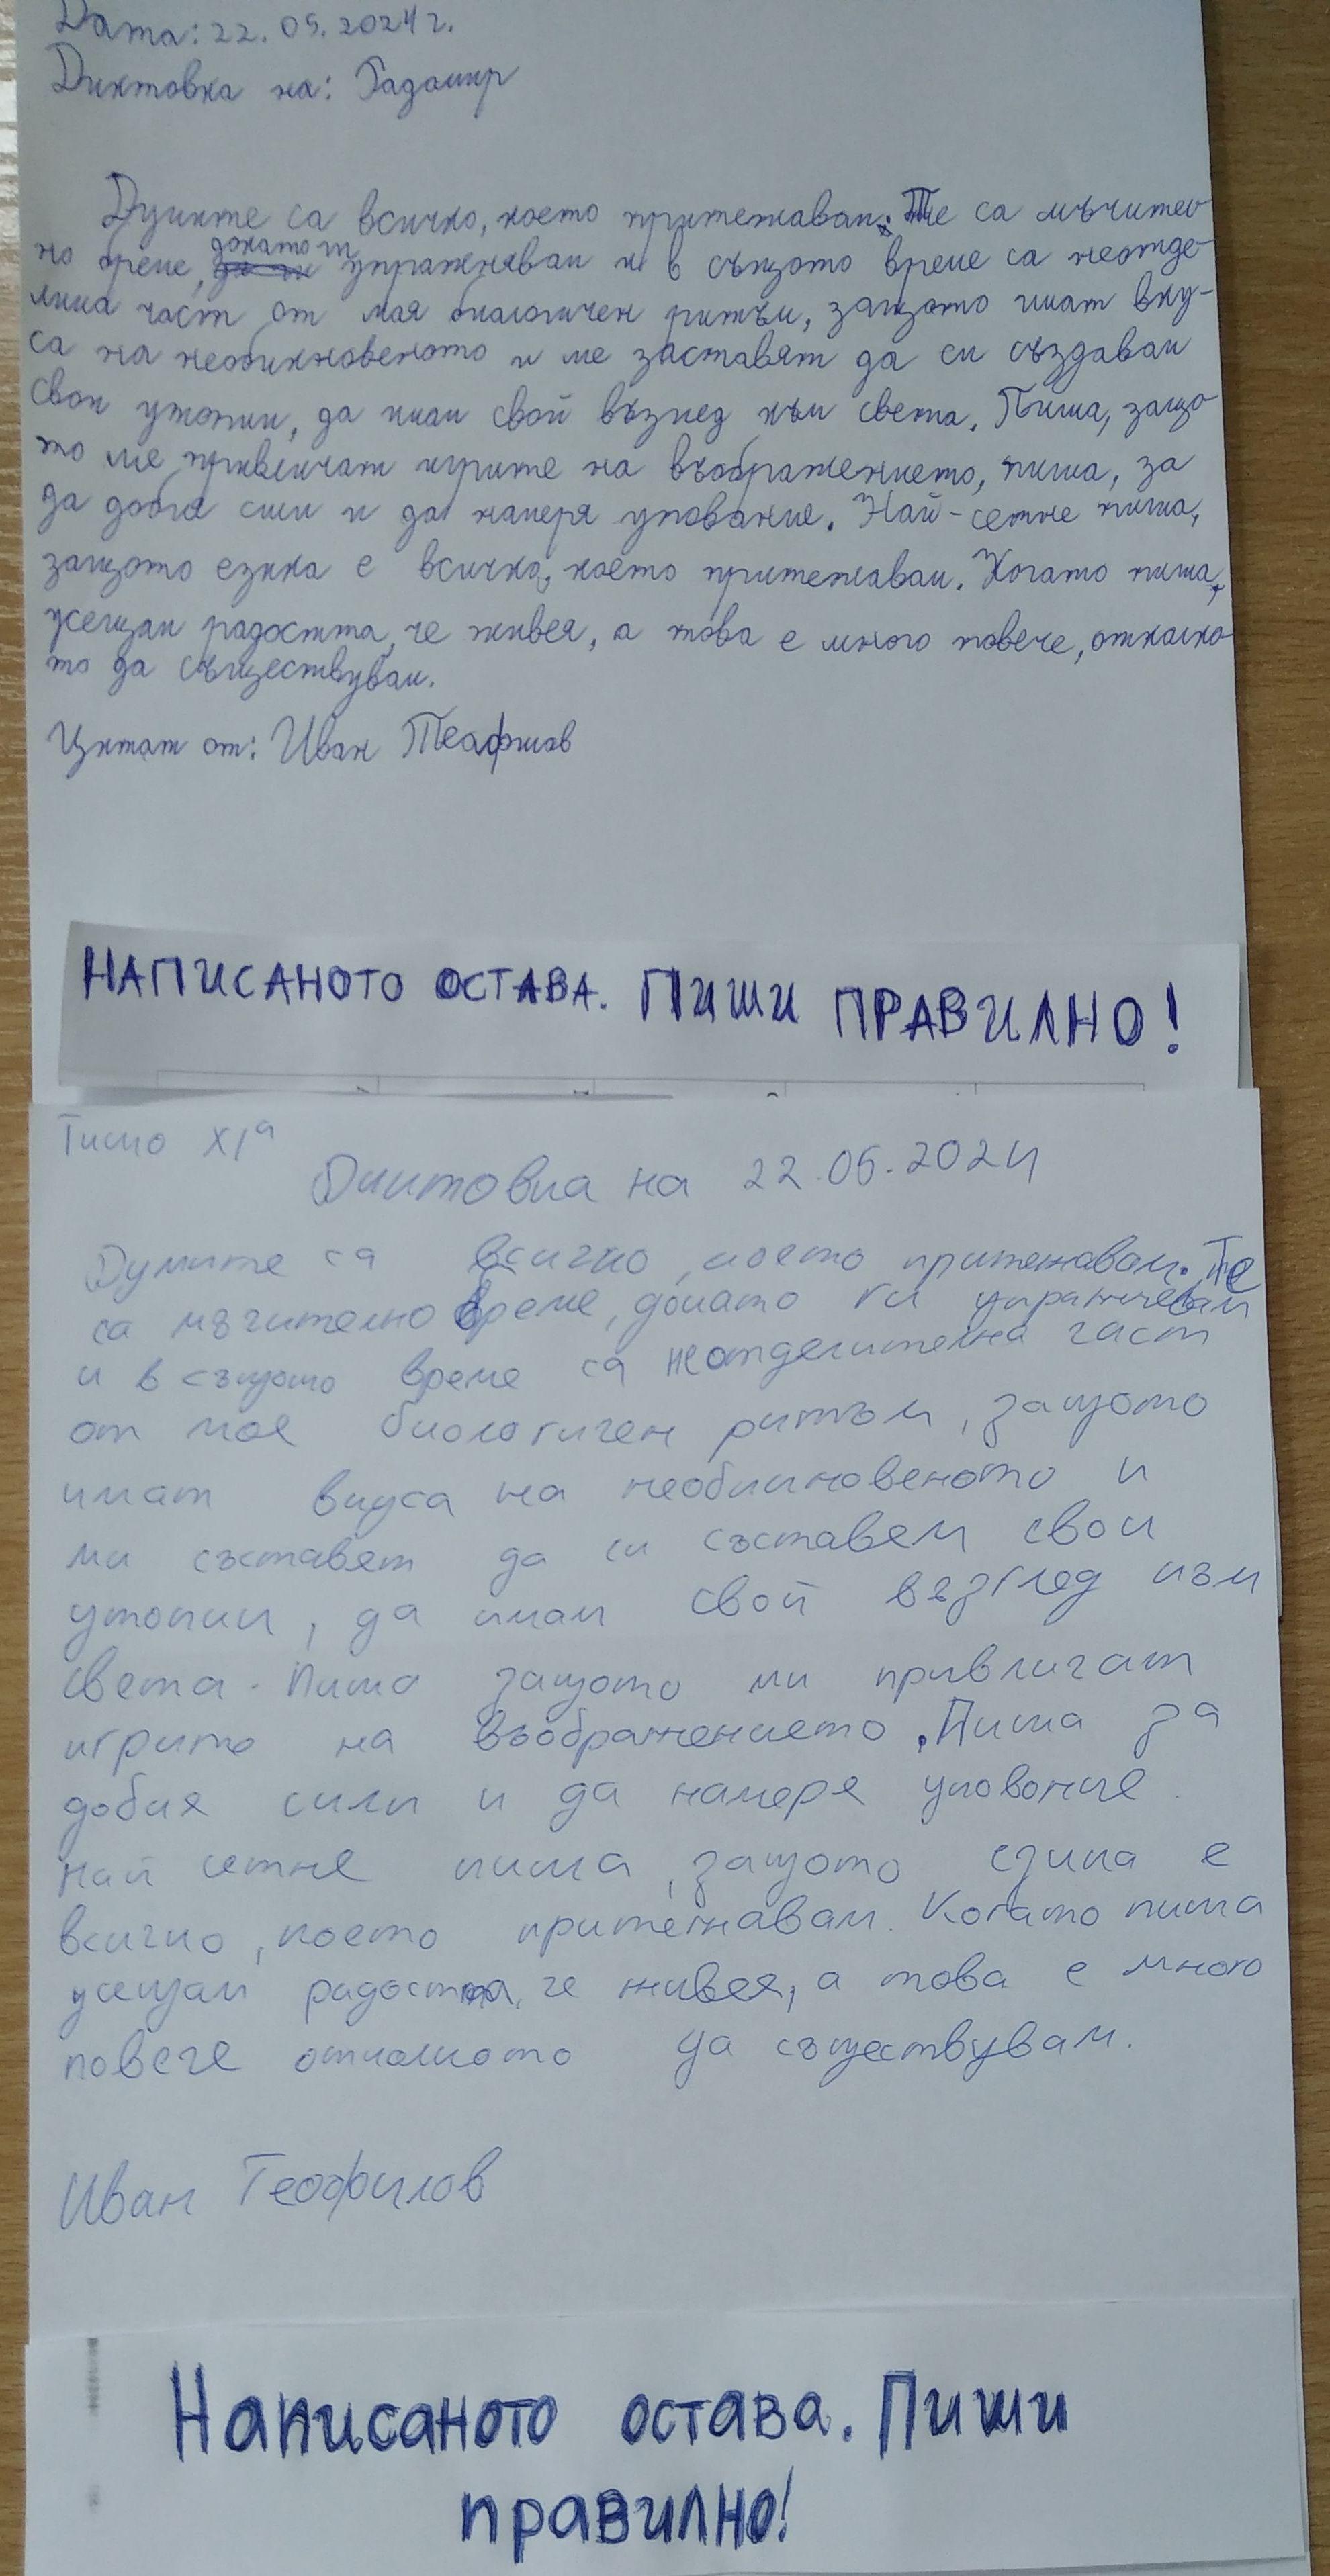 Дата: 22.05.2024 г.
Диктовка на: Радомир
Думите са всичко, което притежавам. Те са мъчител-
но бреме, докато ги упражнявам и в същото време са неотде-
лима част от моя биологичен ритъм, защото имат вку-
са на необикновеното и ме заставят да си създавам
свои утопии, да имам свой възглед към света. Пиша, защо-
то ме привличат игрите на въображението, пиша, за
да добия сили и да намеря упование. Най-сетне пиша,
защото езика е всичко, което притежавам. Когато пиша,
усещам радостта, че живея, а това е много повече, отколко-
то да съществувам.
Цитат от: Иван Теофилов
НАПИСАНОТО ОСТАВА. ПИШИ ПРАВИЛНО!
Тишо XIа
Диктовка на 22.05.2024
Думите са всичко, което притежавам. Те
са мъчително време, докато ги упражневам
и в същото време са неотделителна част
от мое биологичен ритъм, защото
имат вкуса на необикновеното и
ми съставят да си съставем свои
утопии, да имам свой възглед към
света. Пиша защото ми привличат
игрите на въображението. Пиша за
добия сили и да намеря упование.
Най сетне пиша, защото езика е
всичко, което притежавам. Когато пиша
усещам радостта, че живея, а това е много
повече отколкото да съществувам.
Иван Теофилов
Написаното остава. Пиши
правилно!